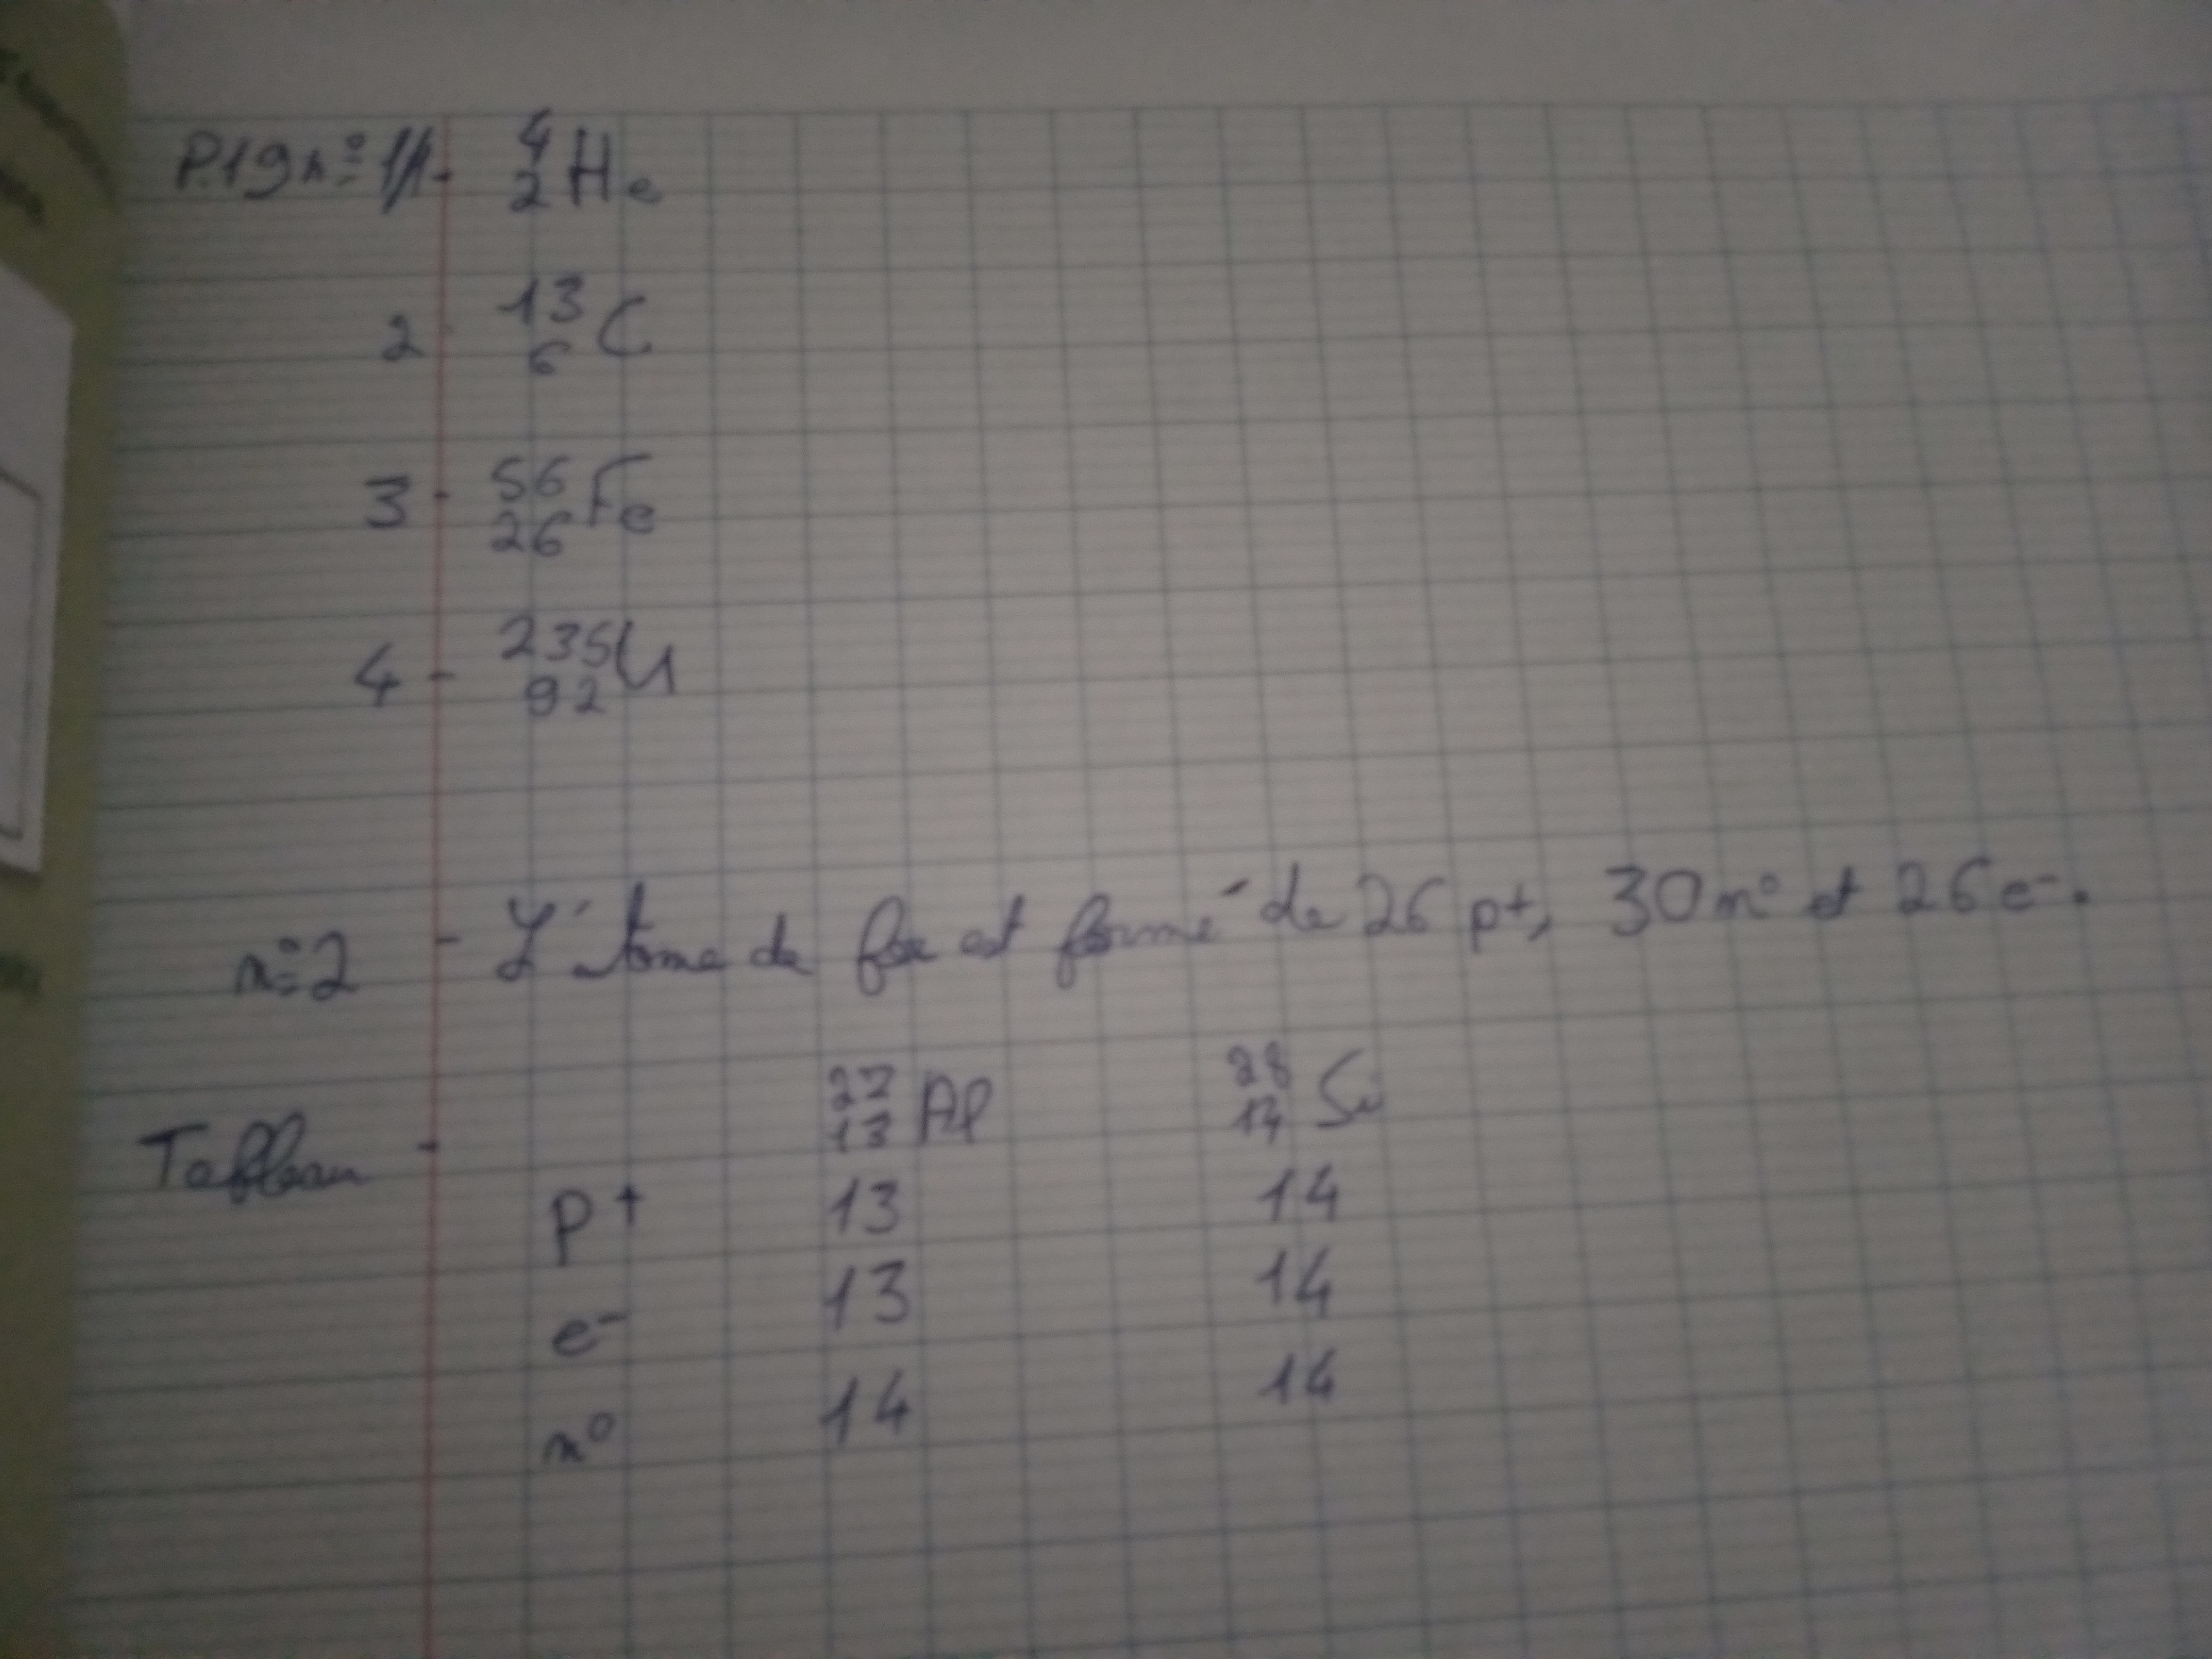 P.19 n° 1/1- ⁴₂He
2- ¹³₆C
3- ⁵⁶₂₆Fe
4- ²³⁵₉₂U
n°2 - L'atome de fer est formé de 26 p+, 30 n° et 26 e-.
Tableau - ²⁷₁₃Al ²⁸₁₄Si
p+ 13 14
e- 13 14
n° 14 14